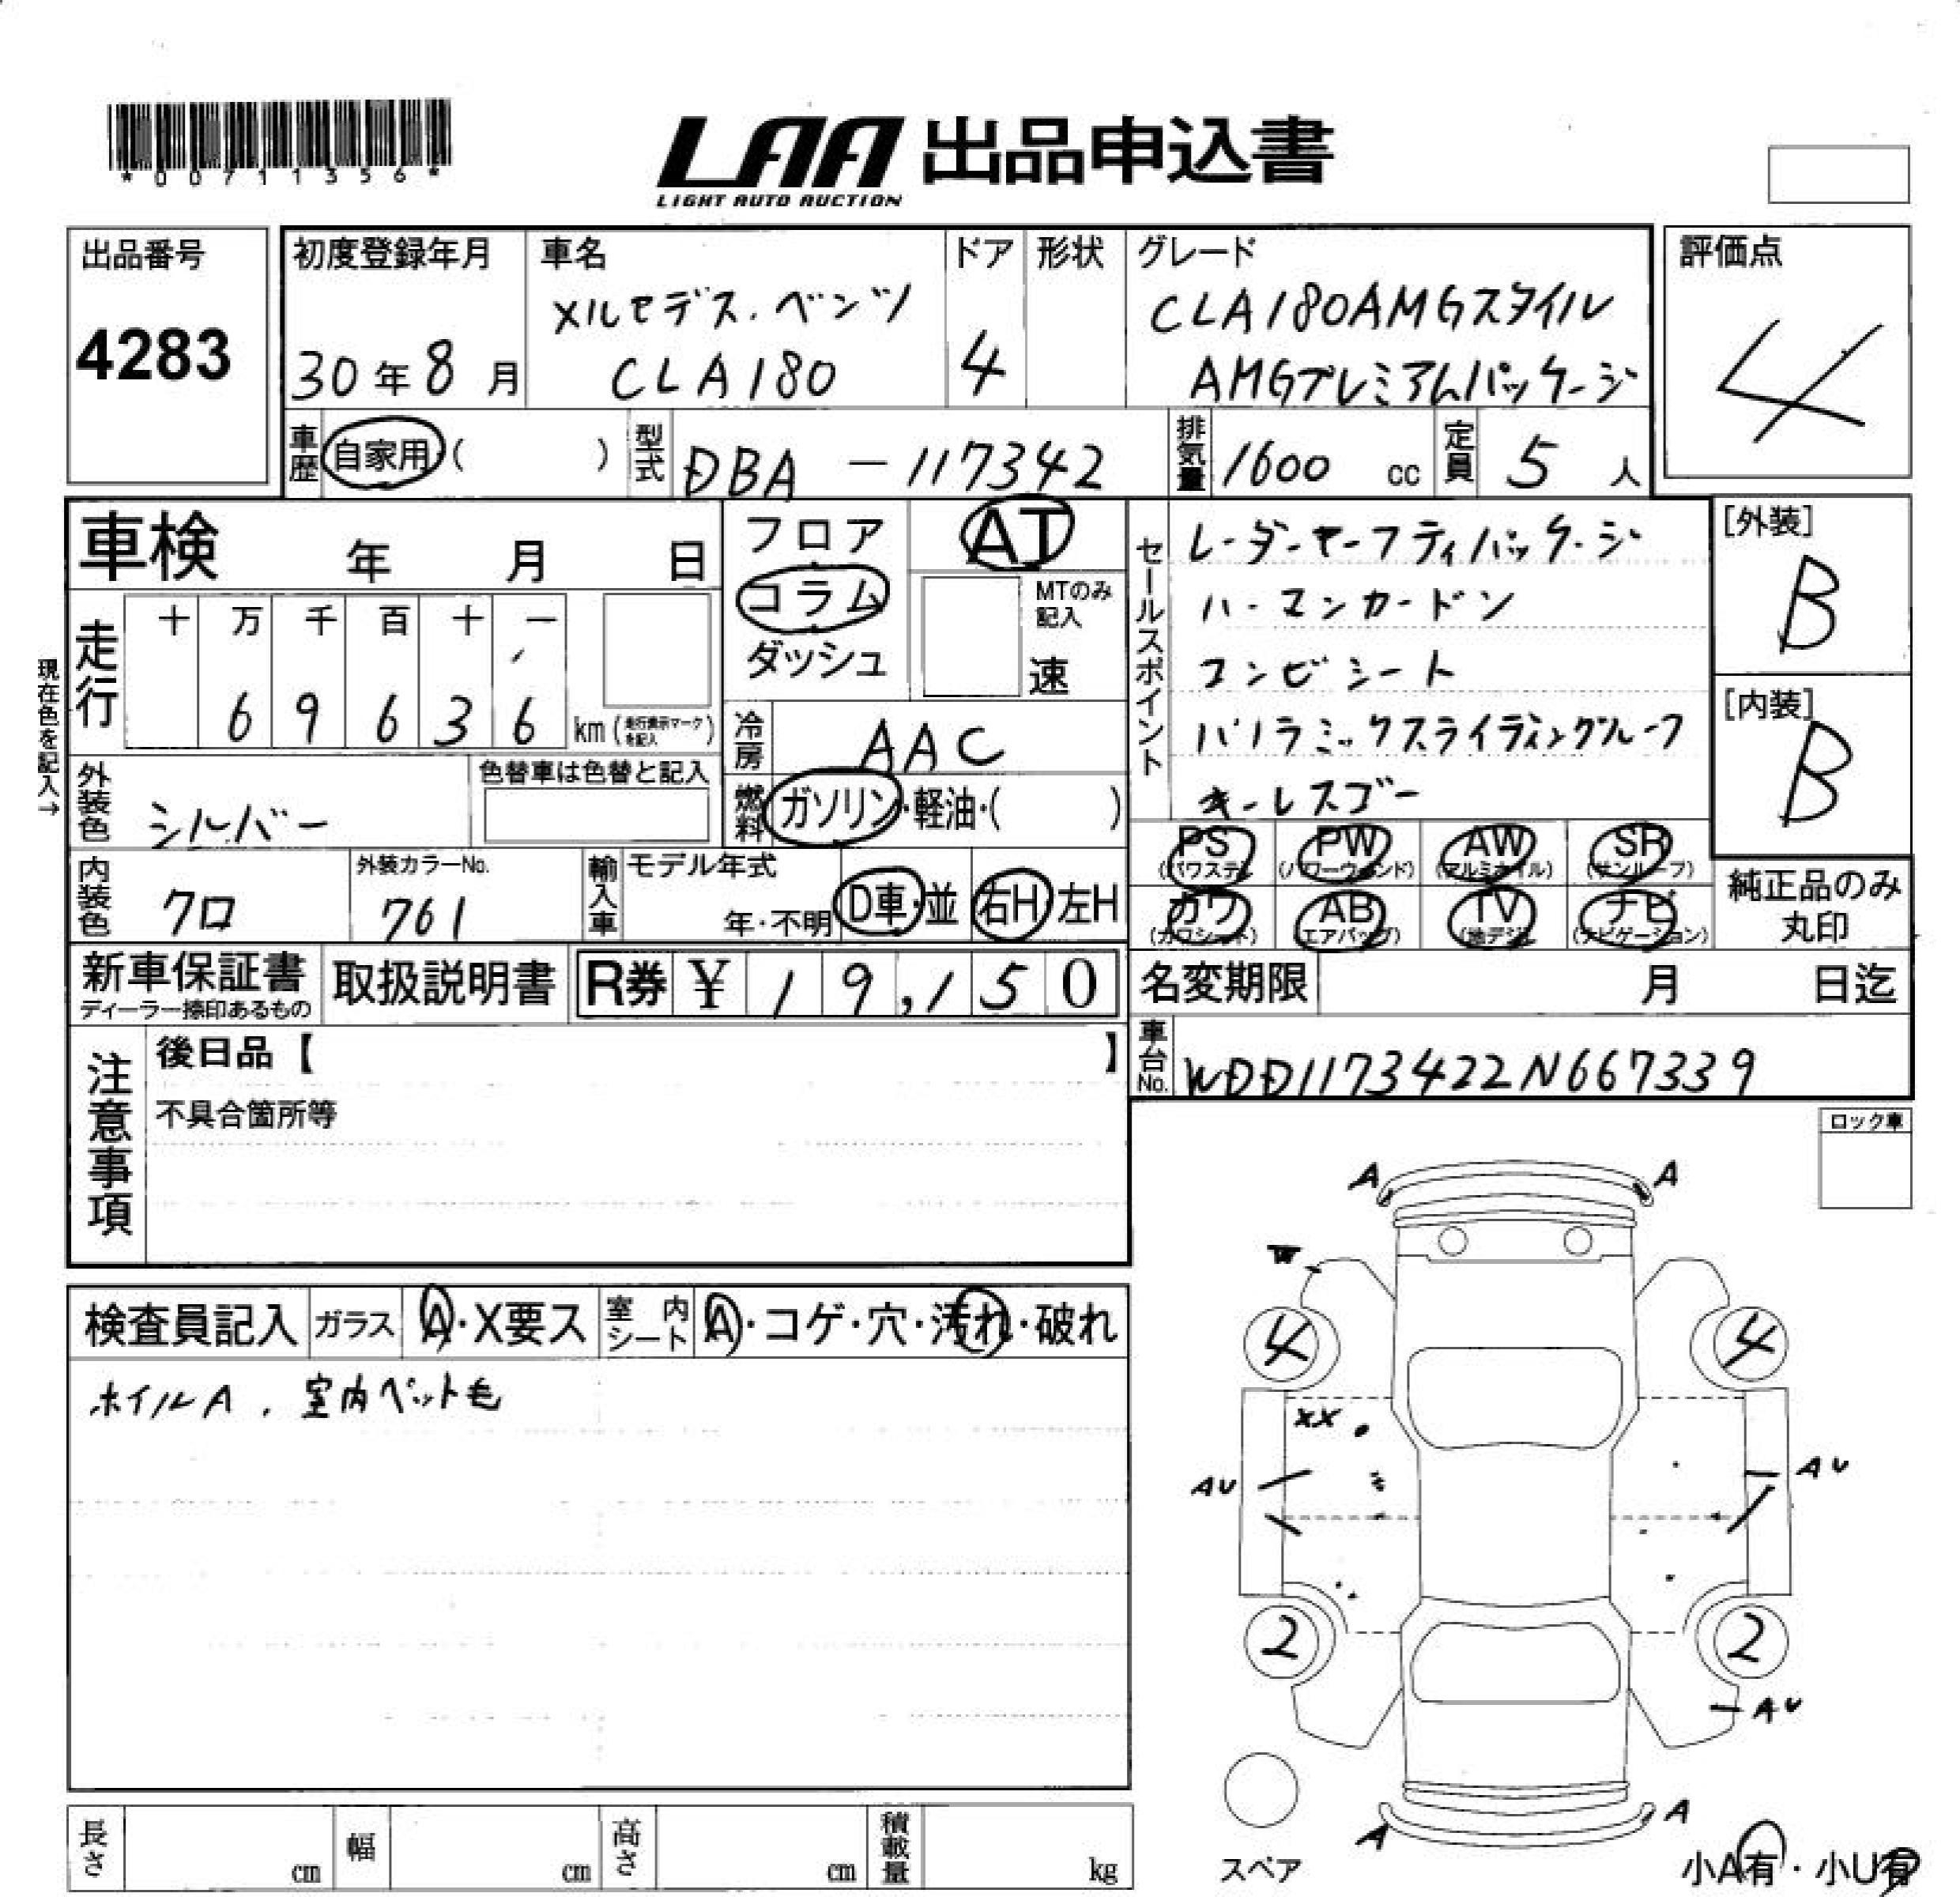 *00711356*
LAA 出品申込書
LIGHT AUTO AUCTION
出品番号
4283
初度登録年月
30年8月
車名
メルセデス・ベンツ
CLA180
ドア
4
形状
グレード
CLA180AMGスタイル
AMGプレミアムパッケージ
評価点
4
車歴 自家用( )
型式 DBA-117342
排気量 1600 cc
定員 5 人
車検 年 月 日
フロア
コラム
ダッシュ
AT
MTのみ
記入
速
現在色を記入→
走行
十 万 千 百 十 一
6 9 6 3 6 km (走行表示マークを記入)
冷房 AAC
燃料 ガソリン・軽油・( )
外装色 シルバー
色替車は色替と記入
内装色 クロ
外装カラーNo.
761
輸入車
モデル年式
年・不明
D車・並
右H 左H
セールスポイント
レーダーセーフティパッケージ
ハーマンカードン
コンビシート
パノラミックスライディングルーフ
キーレスゴー
[外装]
B
[内装]
B
PS (パワステ)
PW (パワーウィンド)
AW (アルミホイル)
SR (サンルーフ)
カワ (カワシート)
AB (エアバッグ)
TV (地デジ)
ナビ (ナビゲーション)
純正品のみ
丸印
新車保証書
ディーラー捺印あるもの
取扱説明書
R券 ¥ 19,150
名変期限 月 日迄
車台No. WDD1173422N667339
注意事項
後日品【 】
不具合箇所等
ロック車
検査員記入
ガラス A・X要ス
室内シート A・コゲ・穴・汚れ・破れ
ホイルA、室内ペット毛
A A
W
4 4
XX
AU AU
2 2
AU
A A
スペア
小A有・小U有
長さ cm
幅 cm
高さ cm
積載量 kg